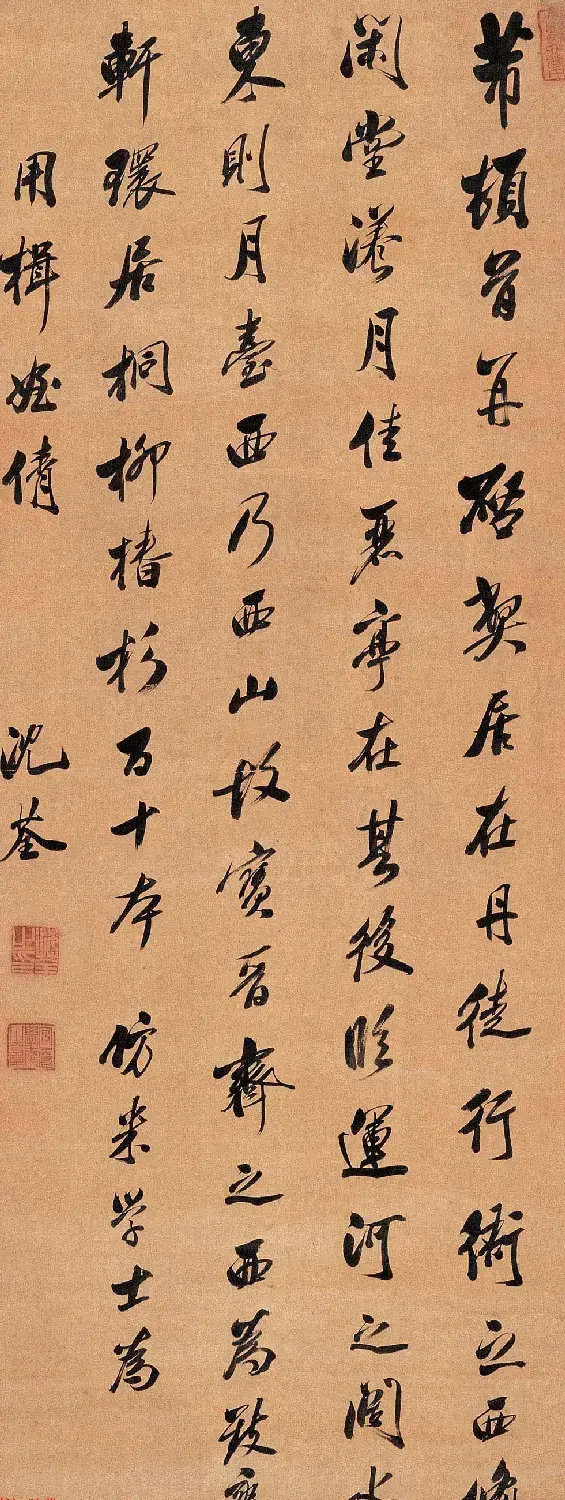 芾頓首再啓弊居在丹徒行衙之西翛
閑堂漾月佳麗亭在其後臨運河之闊水
東則月臺西乃西山故寶晉齋之西為致爽
軒環居桐柳椿杉百十本 倣米学士為
用楫姪倩 沈荃